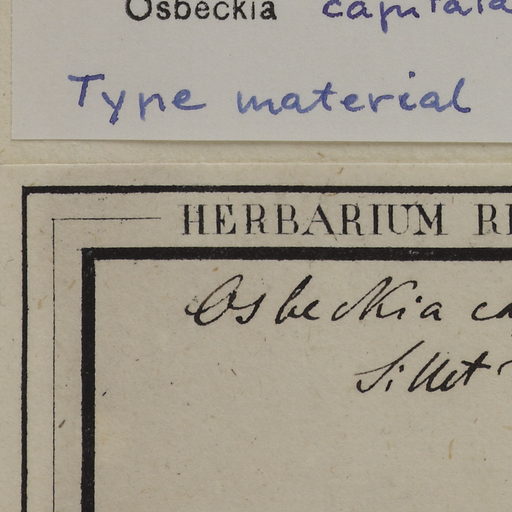 Osbeckia capitata
Type material
HERBARIUM RE
Osbeckia ca
Sillet